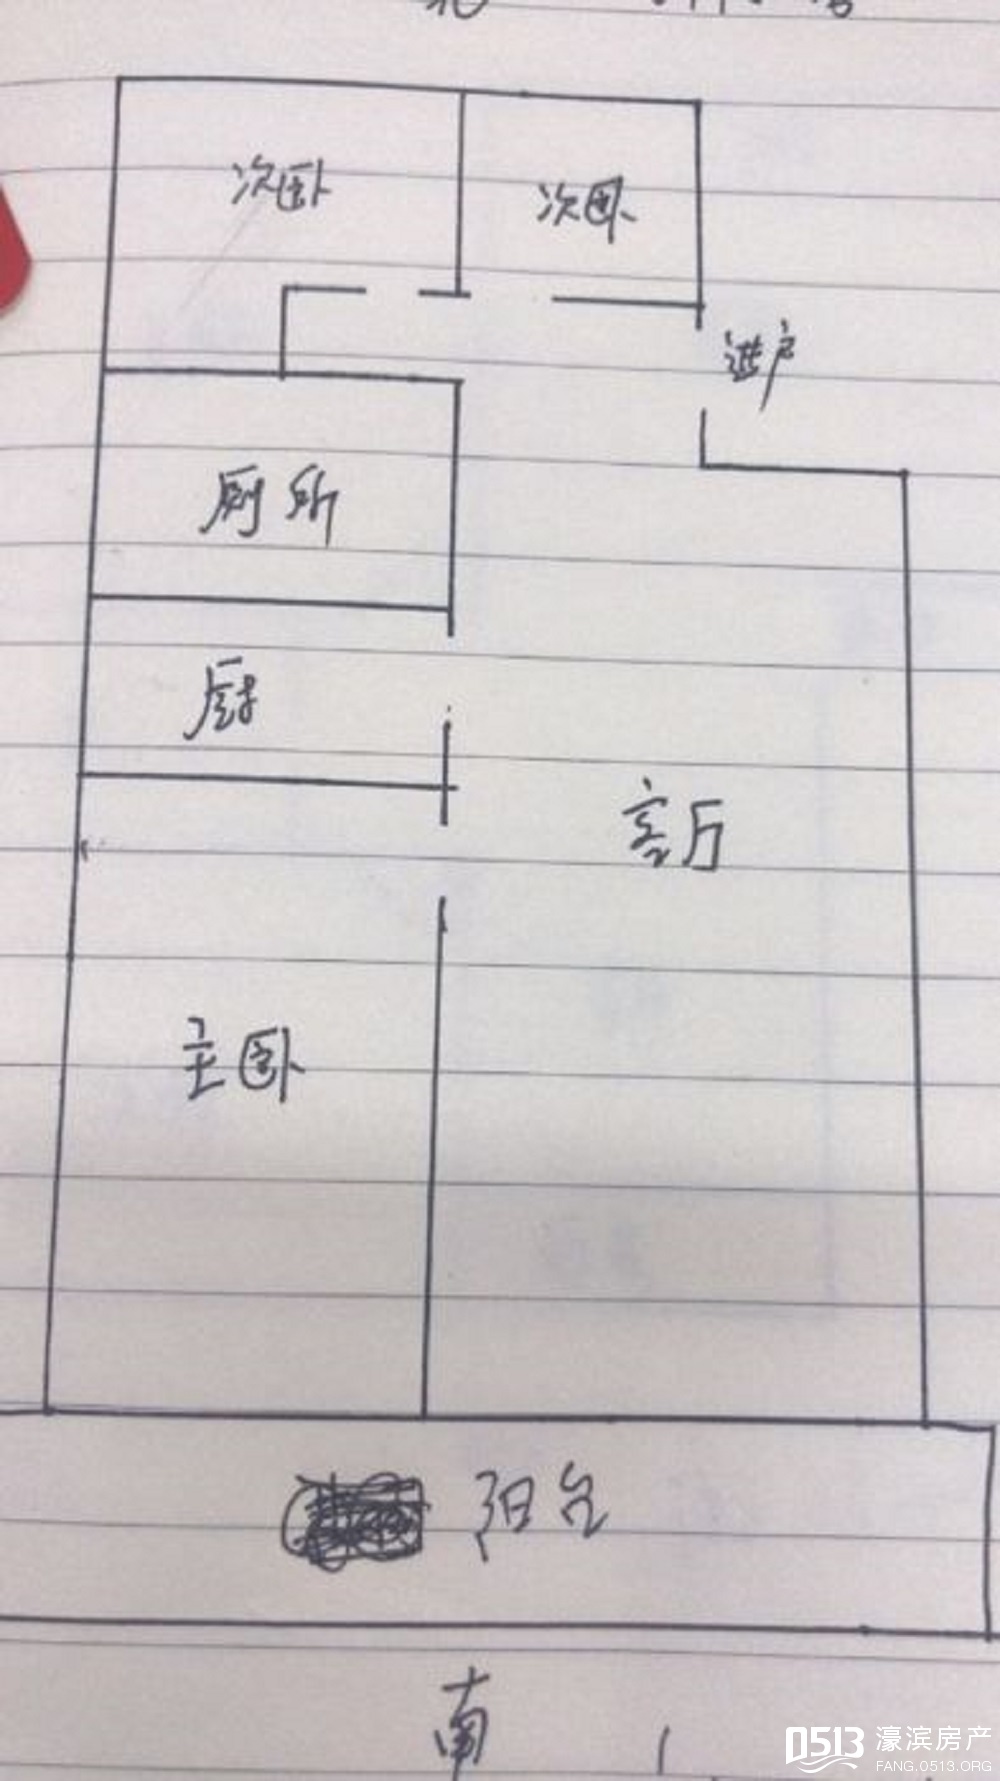 北
次卧
次卧
进户
厕所
厨
客厅
主卧
阳台
南
0513 濠滨房产
FANG.0513.ORG